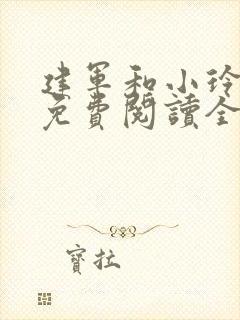 建軍和小玲
免費閱讀全
寶拉